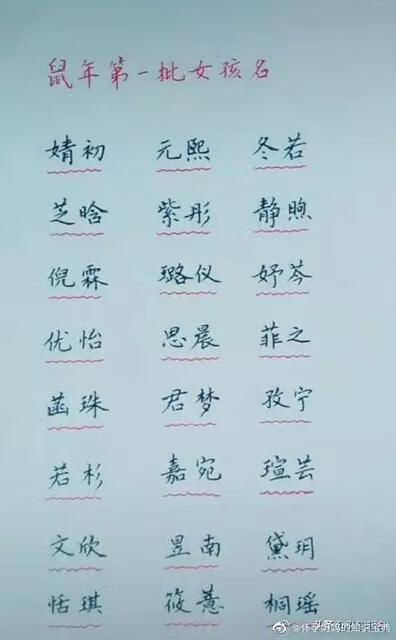 鼠年第一批女孩名
婧初 元熙 冬若
芝晗 紫彤 静煦
倪霖 璐仪 妤芩
优怡 思晨 菲之
菡珠 君梦 孜宁
若杉 嘉宛 瑄芸
文欣 昱南 黛玥
恬琪 筱薏 桐瑶